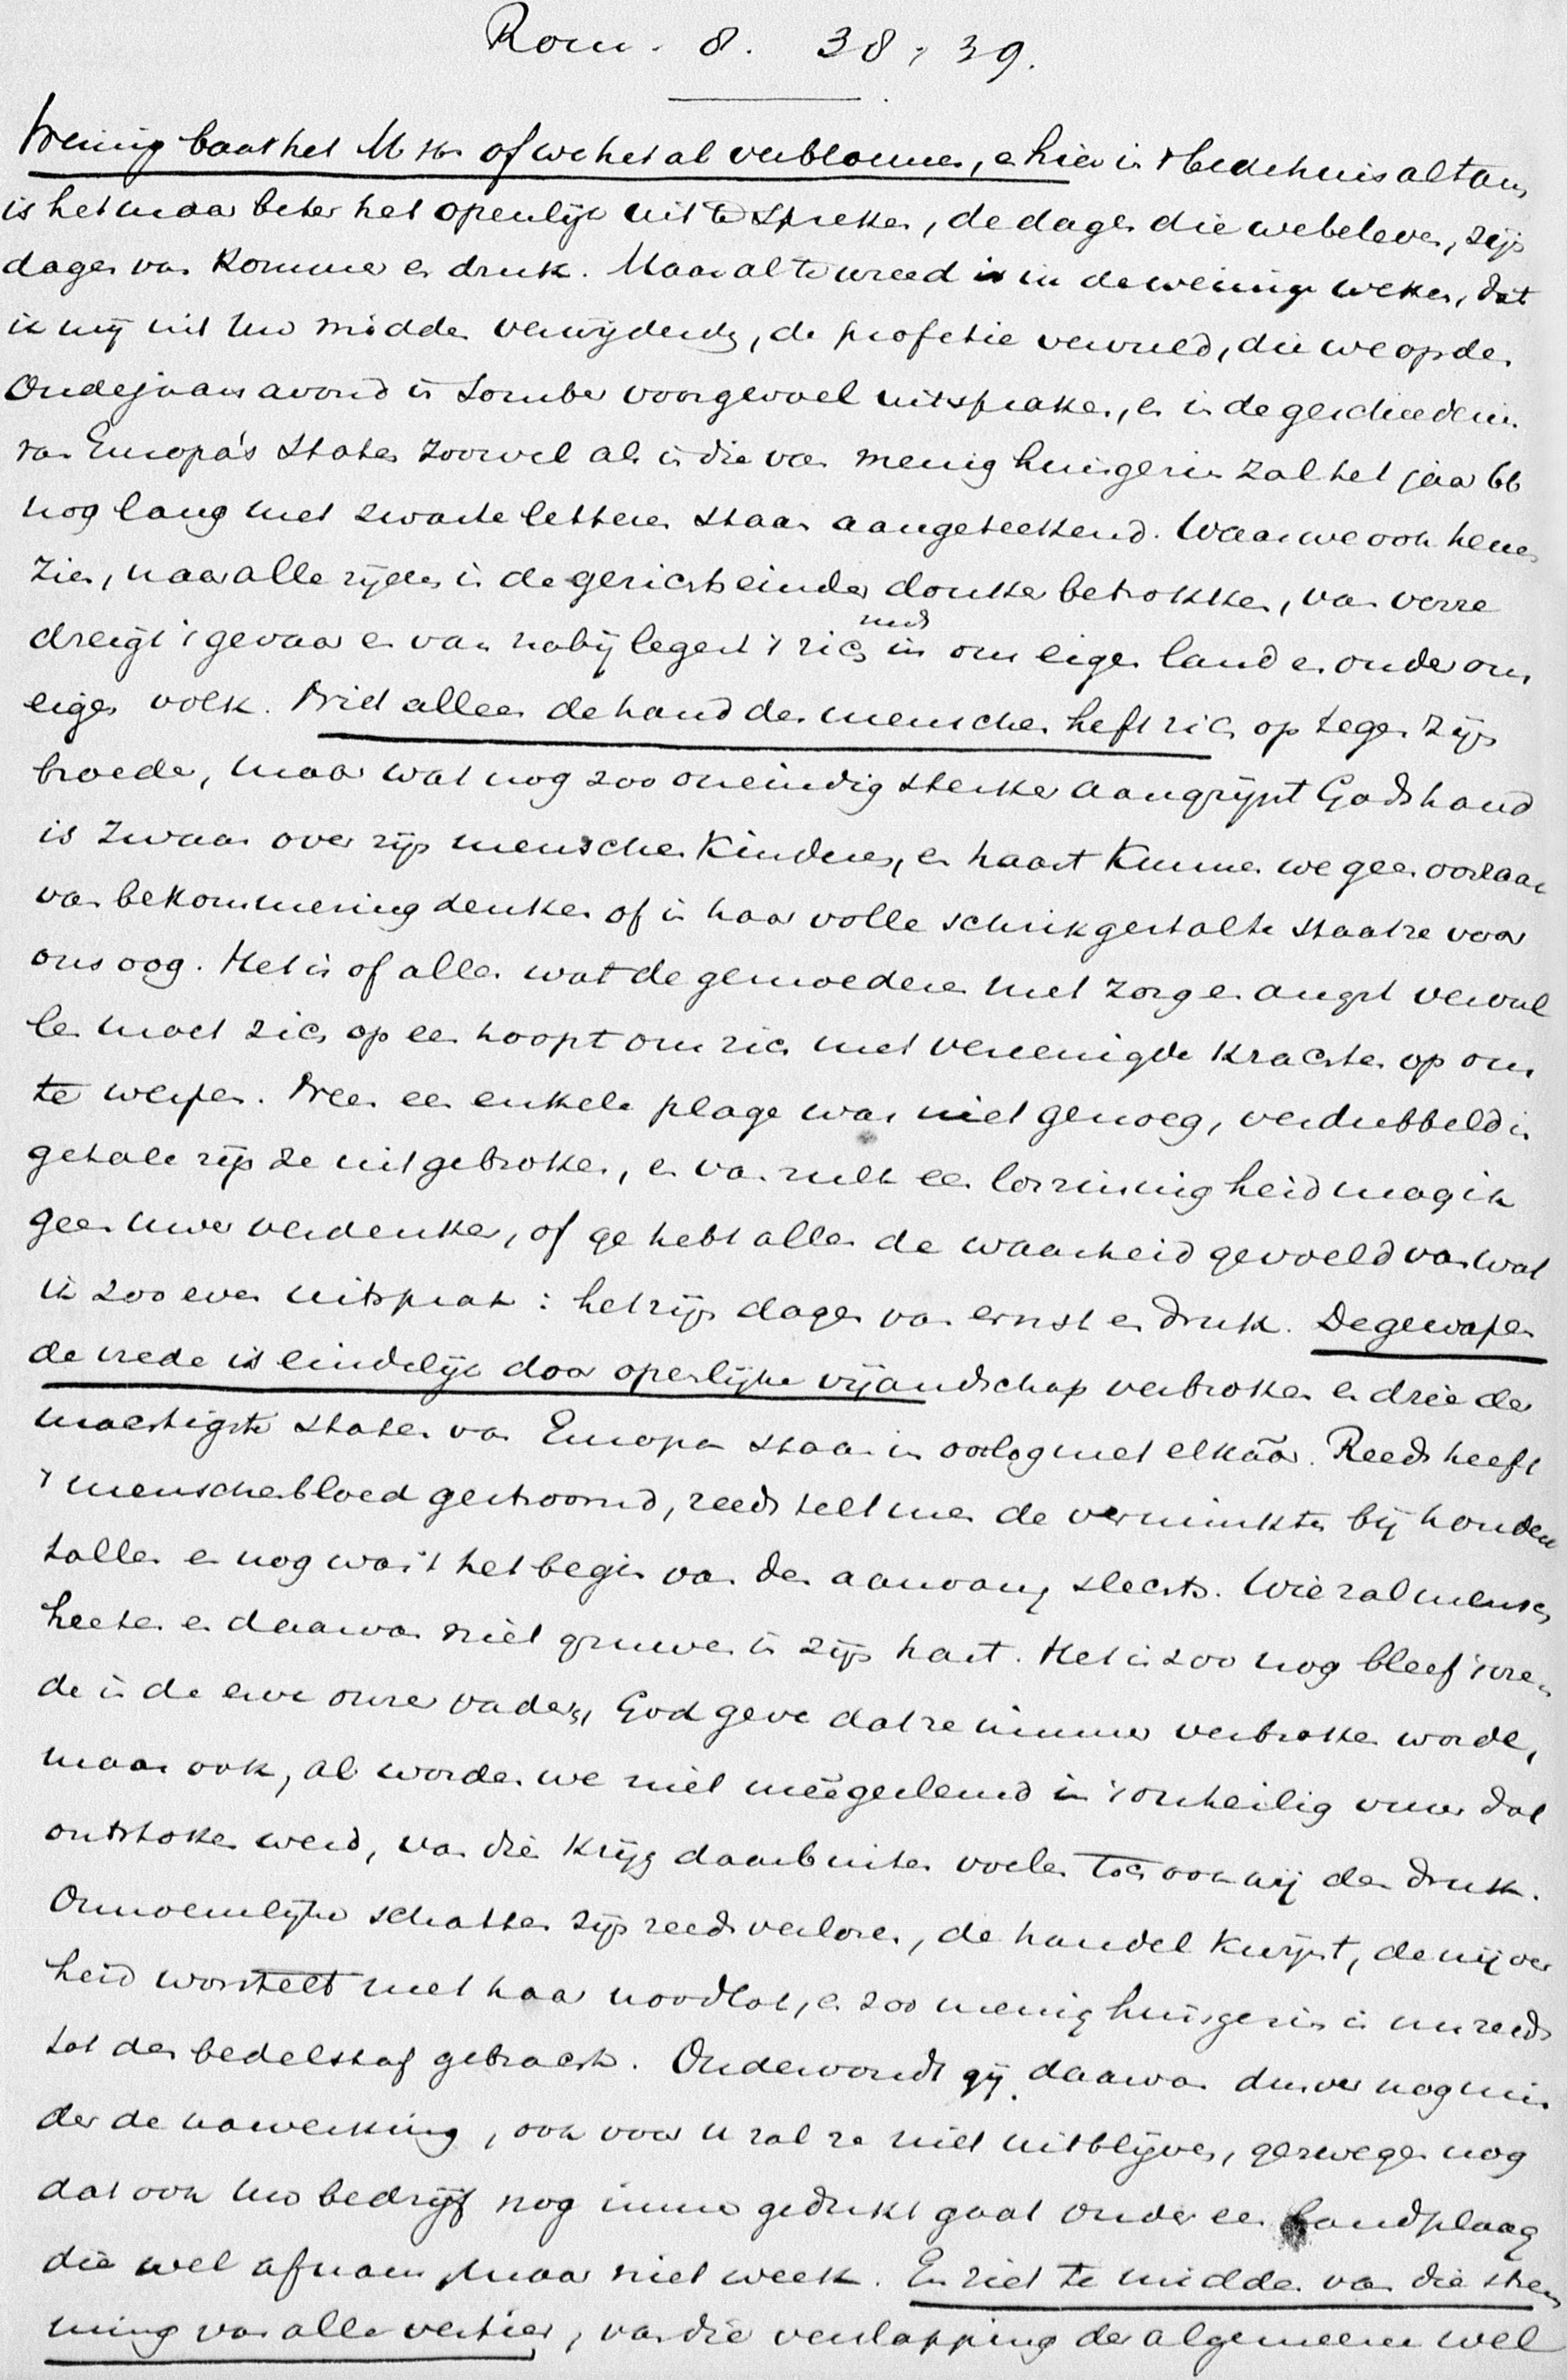 Rom. 8. 38, 39.
Weinig baat het M H. of we het al verbloemen, en hier in 't bedehuis althans
is het maar beter het openlijk uit te spreken, de dagen die we beleven, zijn
dagen van kommer en druk. Maar al te wreed is in de weinige weken, dat
ik mij uit Uw midden verwijderde, de profetie vervuld, die we op den
Oudejaars avond in somber voorgevoel uitspraken, en in de geschiedenis
van Europa's staten zoowel als in die van menig huisgezin zal het jaar 66
nog lang met zwarte letteren staan aangeteekend. Waar we ook henen
zien, naar alle zijden is de gezichteinder donker betrokken, van verre
dreigt 't gevaar en van nabij legert 't zich reeds in ons eigen land en onder ons
eigen volk. Niet alleen de hand der menschen heft zich op tegen zijn
broeder, maar wat nog zoo oneindig sterker aangrijpt Gods hand
is zwaar over zijn menschen kinderen, en haast kunnen we geen oorzaak
van bekommering denken of in haar volle schrikgestalte staat ze voor
ons oog. Het is of alles wat de gemoederen met zorg en angst vervul
len moet zich op een hoopt om zich met vereenigde krachten op ons
te werpen. Neen een enkele plage was niet genoeg, verdubbeld in
getale zijn ze uitgebroken, en van zulk een lorzinnigheid mag ik
geen uwer verdenken, of ge hebt allen de waarheid gevoeld van wat
ik zoo even uitsprak: het zijn dagen van ernst en druk. De gewapen
de vrede is eindelijk door openlijke vijandschap verbroken en drie der
machtigste staten van Europa staan in oorlog met elkaâr. Reeds heeft
't menschenbloed gestroomd, reeds telt men de verminkten bij honder
tallen en nog was 't het begin van den aanvang slechts. Wie zal mensch
heeten en daarvan niet gruwen in zijn hart. Het is zoo nog bleef 't vre
de in de erve onzer vaders, God geve dat ze nimmer verbroken worde,
maar ook, al worden we niet meêgesleurd in 't onheilig vuur dat
ontstoken werd, van die krijg daarbuiten voelen toch ook wij den druk.
Onnoemlijke schatten zijn reeds verloren, de handel kwijnt, de nijver
heid worstelt met haar noodlot, en zoo menig huisgezin is nu reeds
tot den bedelstaf gebracht. Ondervondt gij daarvan dusver nog min
der de nawerking, ook voor U zal ze niet uitblijven, gezwegen nog
dat ook Uw bedrijf nog immer gedrukt gaat onder een landplaag
die wel afnam, maar niet week. En ziet te midden van die strem
ming van alle vertier, van die verslapping der algemeene wel